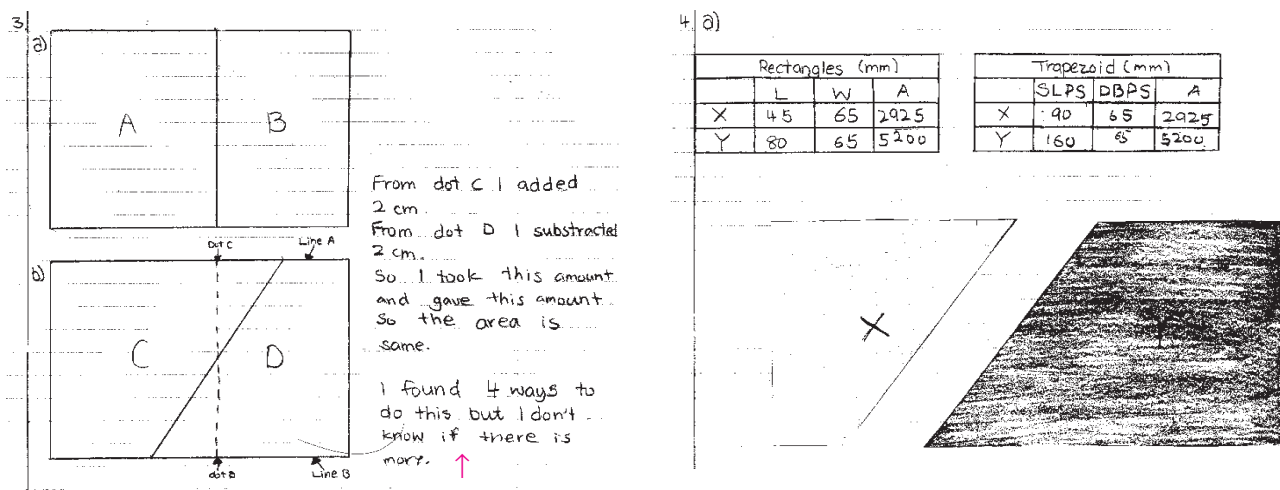 3.
a)
A B
Dot C Line A
b)
C D
dot D Line B
From dot C I added
2 cm.
From dot D I substracted
2 cm.
So I took this amount
and gave this amount
so the area is
same.
I found 4 ways to
do this but I don't
know if there is
more.
4 a)
Rectangles (mm)
L W A
X 45 65 2925
Y 80 65 5200
Trapezoid (mm)
SLPS DBPS A
X 90 65 2925
Y 160 65 5200
X Y